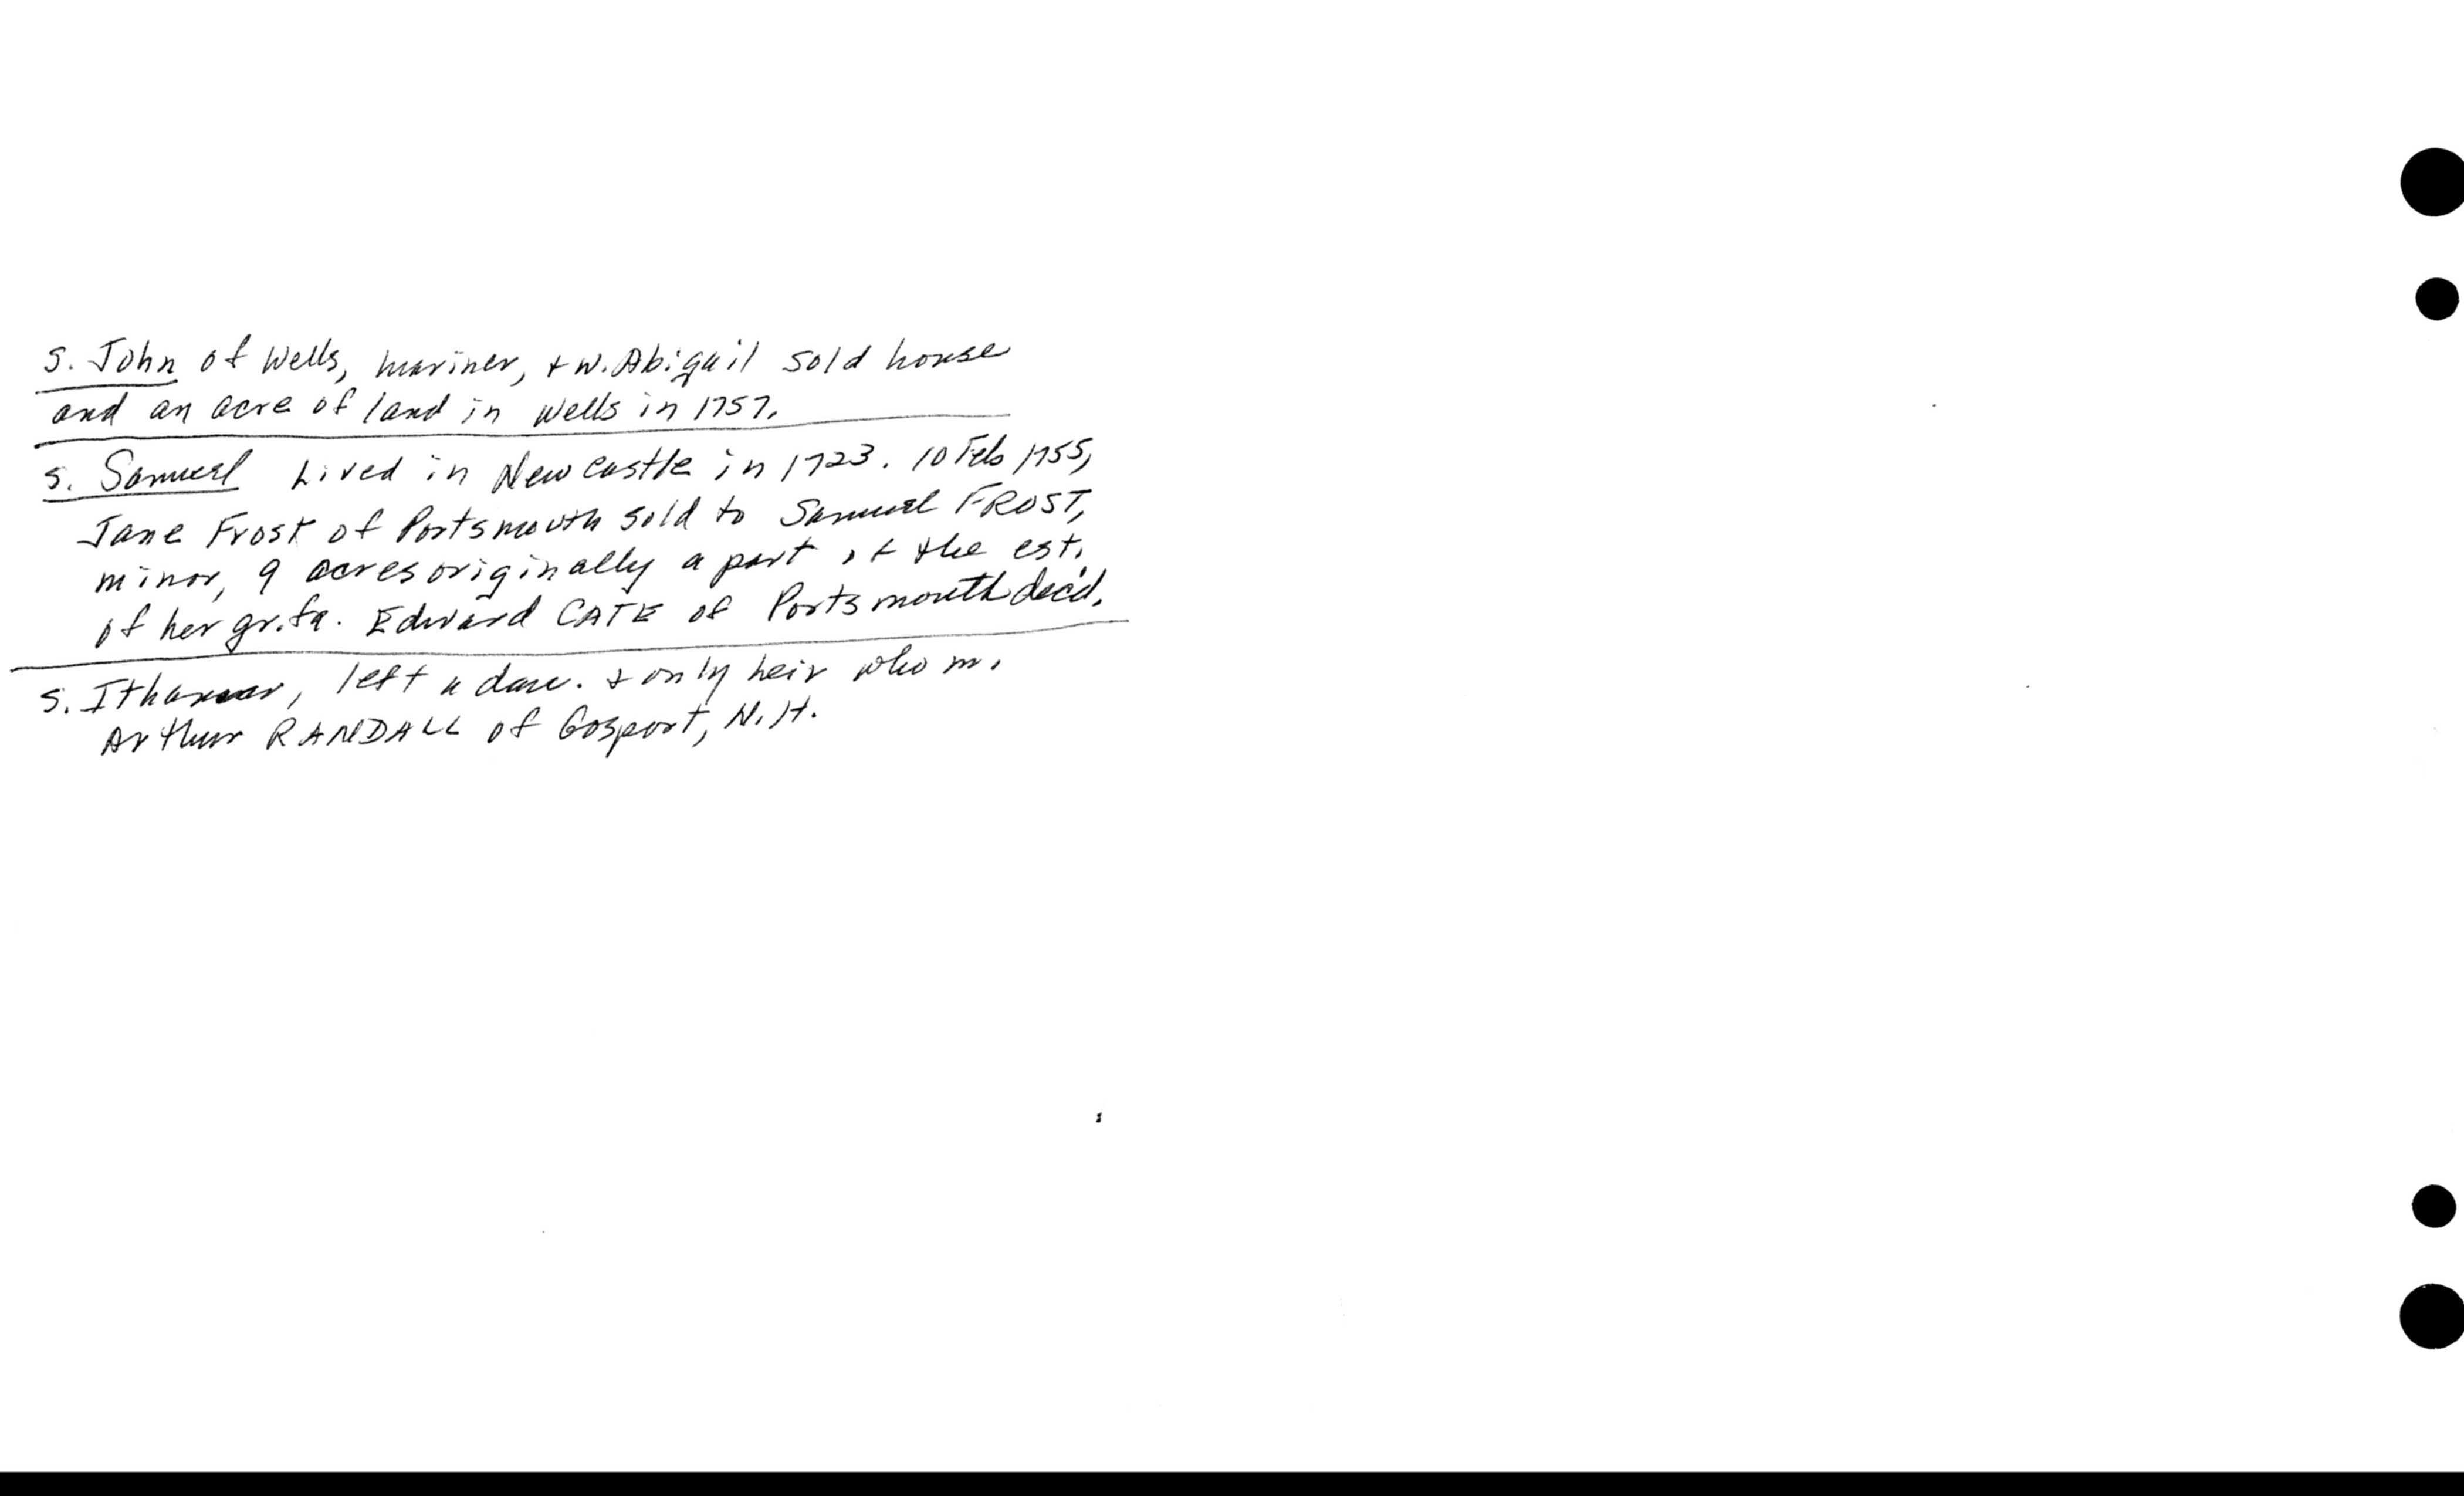 S. John of Wells, mariner, + w. Abigail sold house
and an acre of land in Wells in 1757.
S. Samuel Lived in New Castle in 1723. 10 Feb 1755,
Jane Frost of Portsmouth sold to Samuel FROST,
minor, 9 acres originally a part of the est.
of her gr. fa. Edward CATE of Portsmouth dec'd.
S. Ithamar, left a dau. + only heir who m.
Arthur RANDALL of Gosport, N.H.